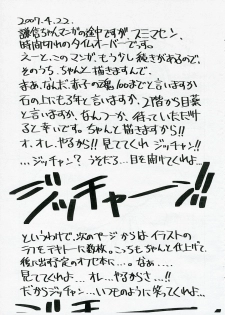 2007.4.22.
謙信ちゃんマンガの途中ですが、スミマセン、
時間切れのタイムオーバーです。
えーと、このマンガ、もう少し続きがあるので、
そのうち、ちゃんと描きますんで、
まぁ、なんだ、赤子の魂100までと言いますか
石の上にも3年と言いますか、2階から目薬
と言いますか、なんつーか、待っていただけ
ると幸いです。ちゃんと描きますから!!
オ、オレ、やるから!! 見ててくれよ ジッチャン
…ジッチャン? うそだろ… 目を開けてくれよ…
ジッチャーン!!
というわけで、次のページからはイラストの
ラフモデキトーに数枚。こっちもちゃんと仕上げて、
後に出す予定のオフセ本に…。なぁ…、
見ててくれよ…、オレ…やるからさ…!!
だからジッチャン…いつものように笑ってくれよ…